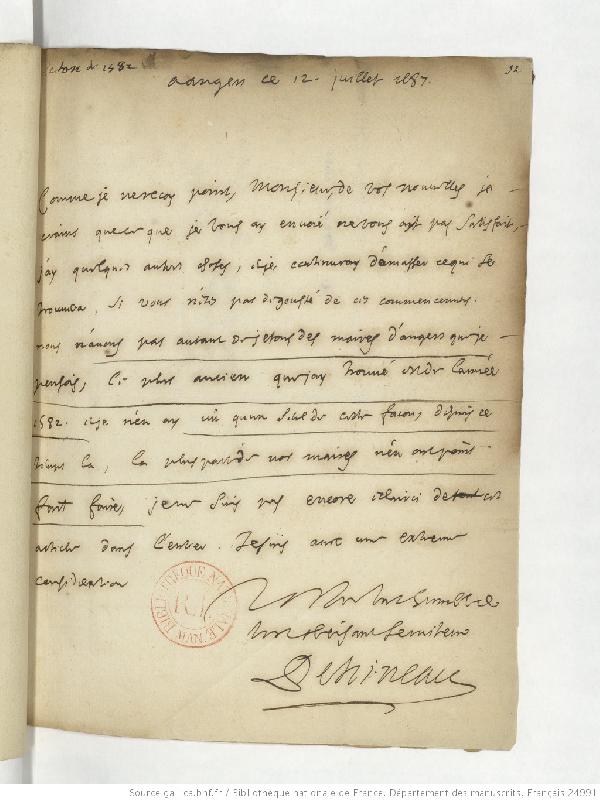 jettons de 1582
92
a angers ce 12. juillet 1687.
Comme je ne recoy point, Monsieur, de vos nouvelles je
crains que ce que je vous ay envoié ne vous ayt pas satisfait,
j'ay quelques autres choses, et je continuray d'amasser ce qui se
trouvera, si vous n'étes pas dégousté de ces commencemens.
nous n'avons pas autant de jetons des maires d'angers que je
pensois, le plus ancien que j'ay trouvé est de l'année
1582. et je n'en ay vû qu'un seul de cette facon, depuis ce
temps la, la plus part de nos maires n'en ont point
fait faire, je ne suis pas encore éclairci de cet
article dans l'entier. Je suis avec une extreme
consideration
Vostre tres humble
et tres obeissant serviteur
BIBLIOTHEQUE NATIONALE
Source gallica.bnf.fr / Bibliothèque nationale de France. Département des manuscrits. Français 24991